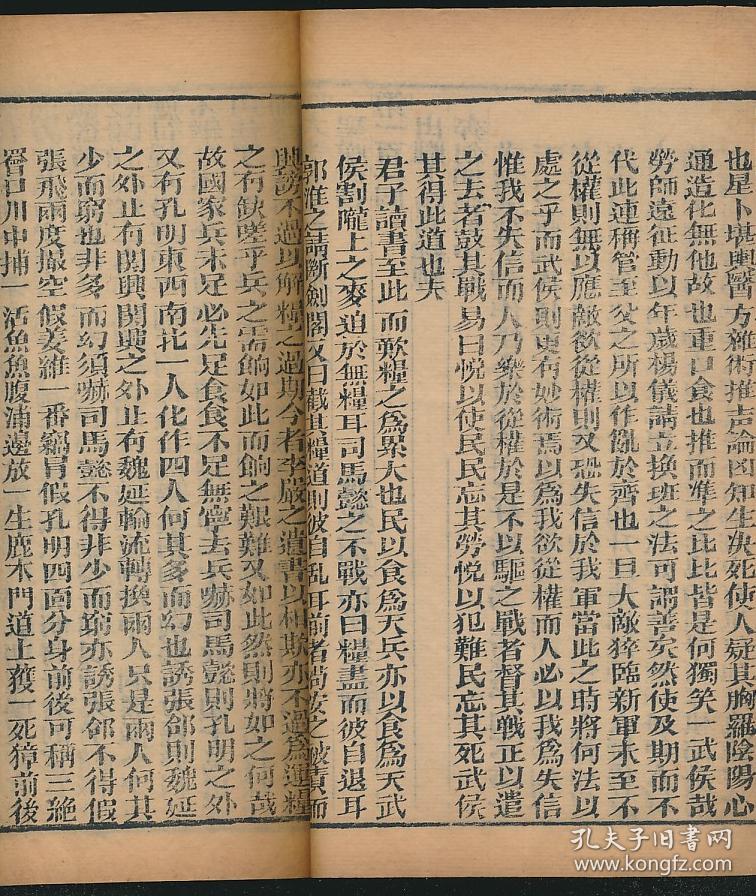 也星卜堪輿醫方雜術推声論凶知生决死使人疑其胸羅陰陽心
通造化無他故也重口食也推而準之比比皆是何獨笑一武侯哉
勞師遠征動以年歲楊儀請立換班之法可謂善矣然使及期而不
代此連稱管至父之所以作亂於齊也一旦大敵猝臨新軍未至不
從權則無以應敵欲從權則又恐失信於我軍當此之時將何法以
處之乎而武侯則更有妙術焉以為我欲從權而人必以我為失信
惟我不失信而人乃樂於從權於是不以驅之戰者督其戰正以遣
之去者鼓其戰易曰悅以使民民忘其勞悅以犯難民忘其死武侯
其得此道也夫
君子讀書至此而歎糧之為累大也民以食為天兵亦以食為天武
侯割隴上之麥迫於無糧耳司馬懿之不戰亦曰糧盡而彼自退耳
郭淮之請斷劍閣又曰截其糧道則彼自乱耳前者苟安之被責而
興謗不過以解糧之過期今者李嚴之遺書以相欺亦不過為運糧
之有缺嗟乎兵之需餉如此而餉之艱難又如此然則將如之何哉
故國家兵未足必先足食食不足無寧去兵嚇司馬懿則孔明之外
又有孔明東西南北一人化作四人何其多而幻也誘張郃則魏延
之外止有関興関興之外止有魏延輪流轉換兩人只是兩人何其
少而窮也非多而幻須嚇司馬懿不得非少而窮亦誘張郃不得假
張飛兩度撮空假姜維一番竊冒假孔明四面分身前後可稱三絶
罾口川中捕一活魚魚腹浦邊放一生鹿木門道上獲一死獐前後
孔夫子旧书网
www.kongfz.com